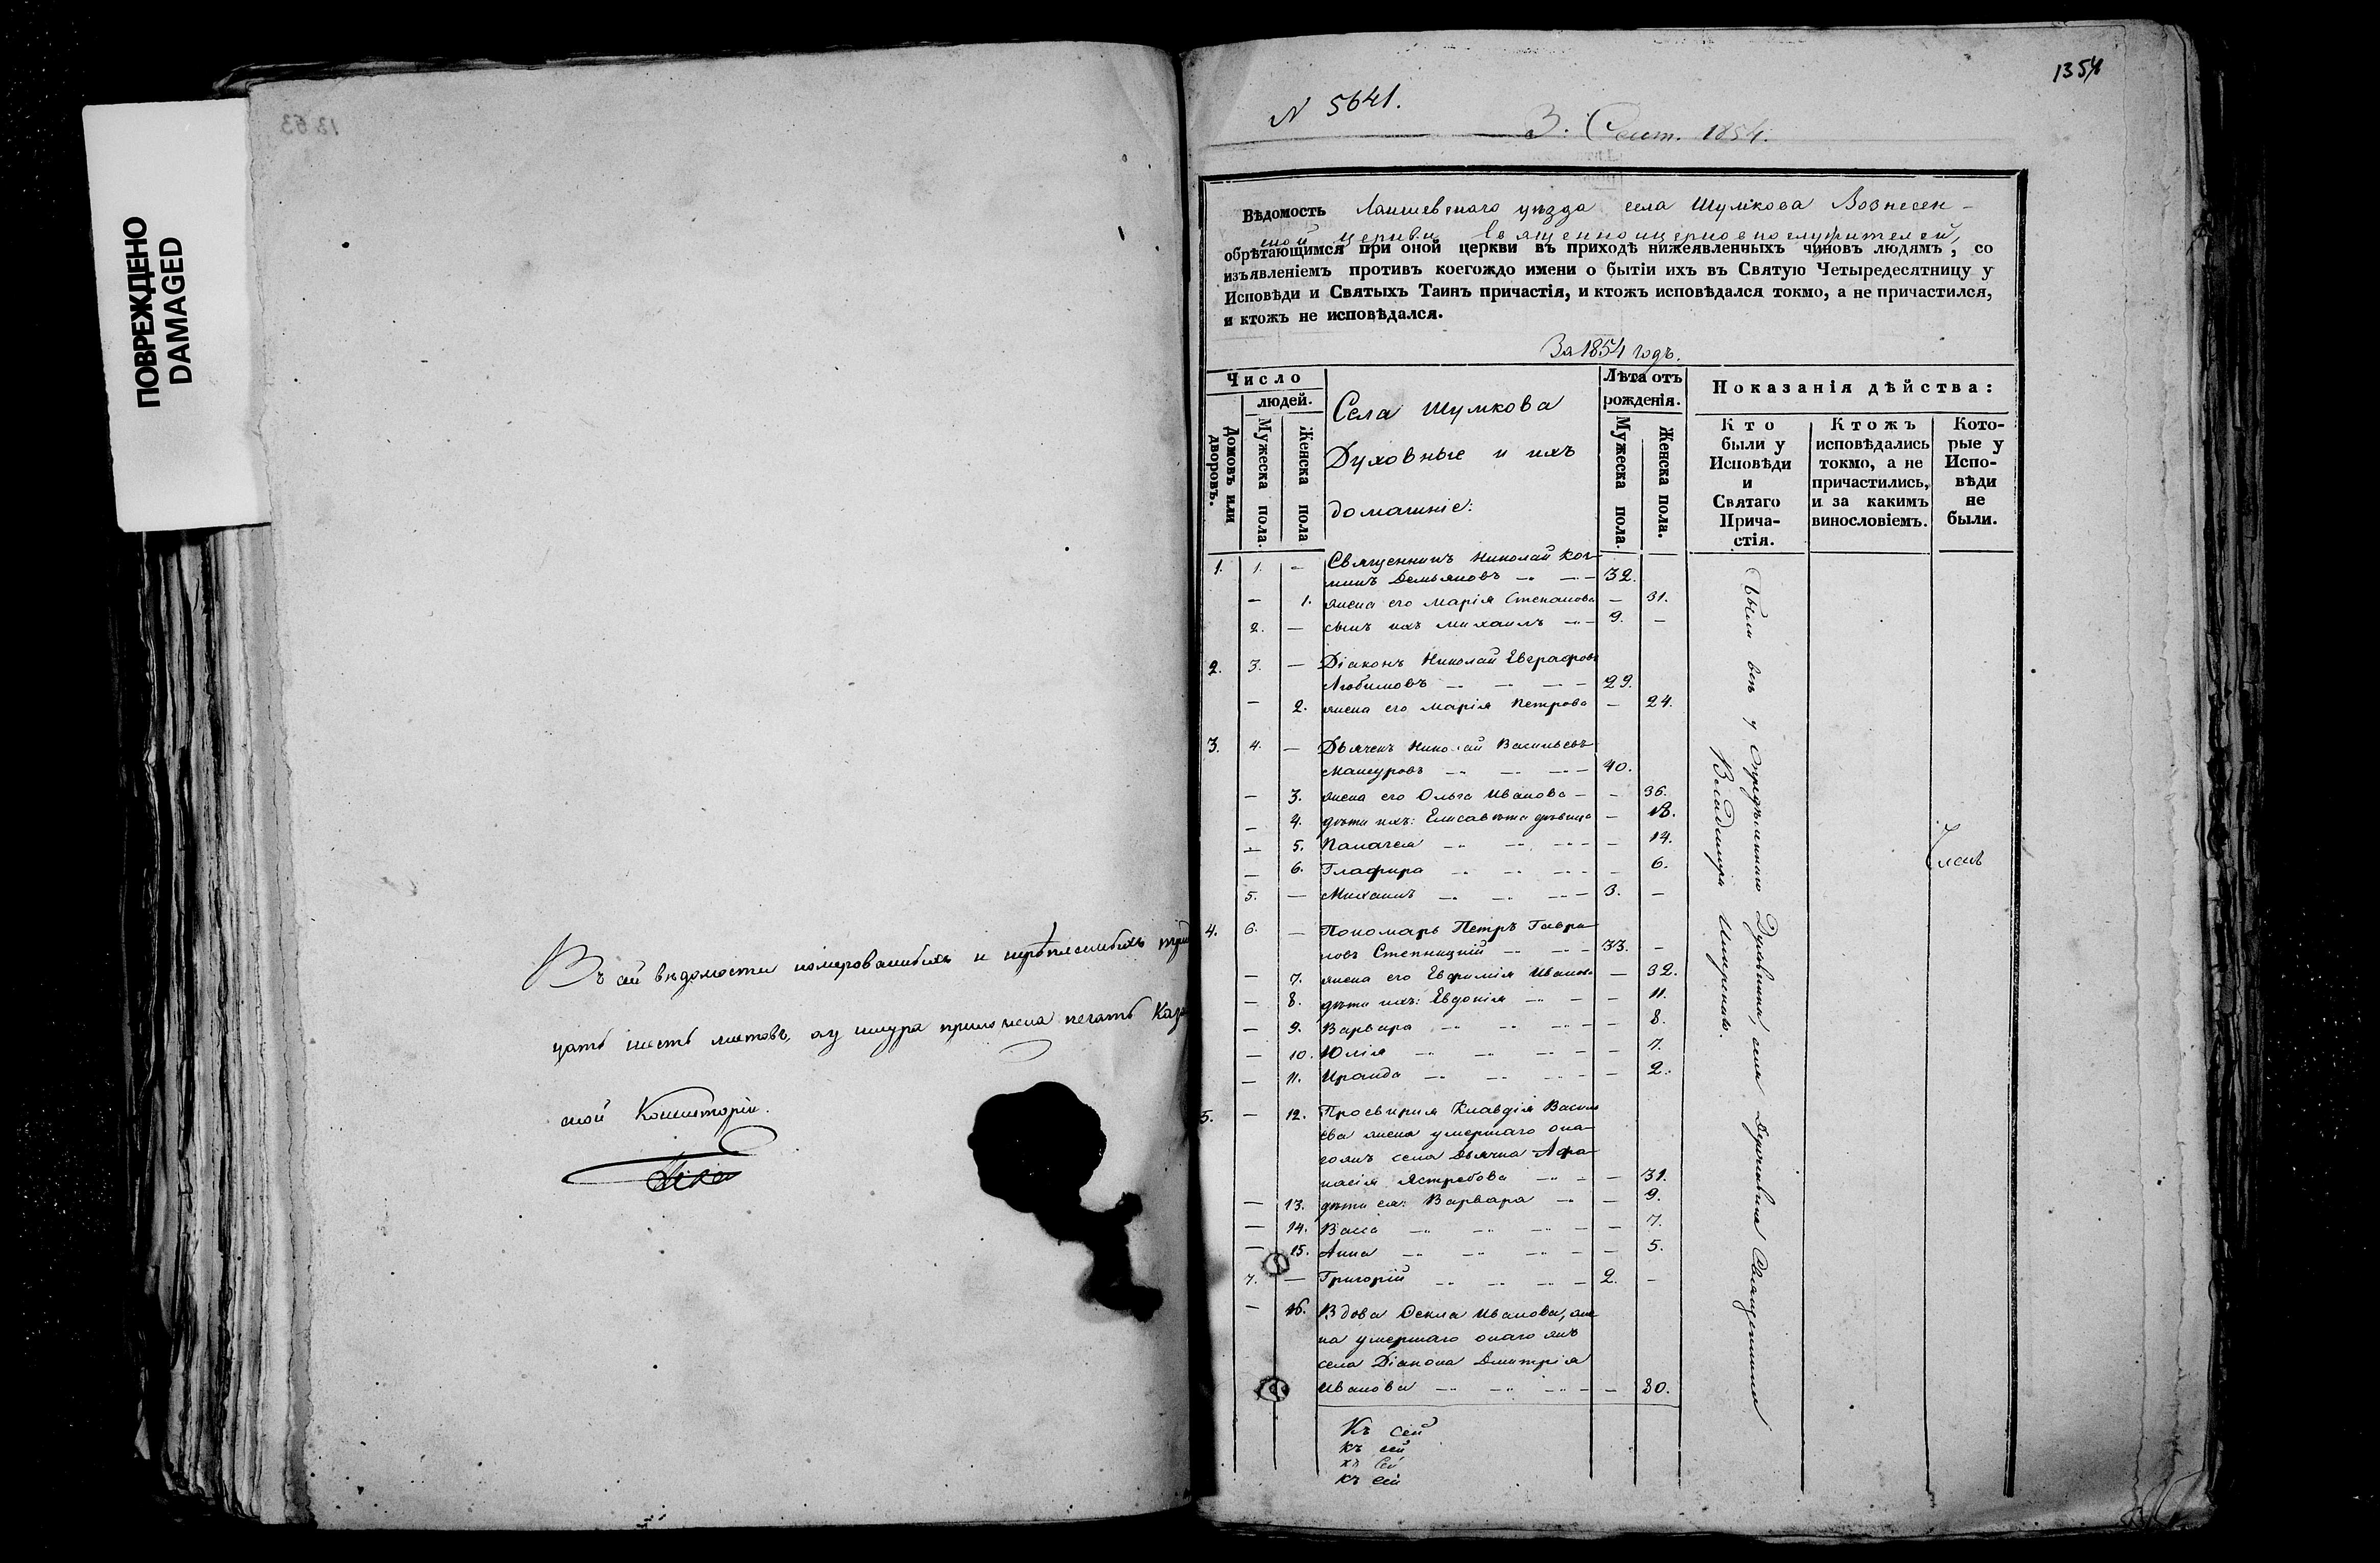 ПОВРЕЖДЕНО
DAMAGED
1363
Въ сей вѣдомости номерованныхъ и
цать шесть листовъ, а у шнура приложена печать Каза
ской Консисторіи.
1354
N 5641.
3. Сент. 1854.
Вѣдомость Лаишевскаго уѣзда села Шумкова Вознесен-
ской церкви священноцерковнослужителей,
обрѣтающимся при оной церкви въ приходѣ нижеявленныхъ чиновъ людямъ, со
изъявленіемъ противъ коегождо имени о бытіи ихъ въ Святую Четыредесятницу у
Исповѣди и Святыхъ Таинъ причастія, и ктожъ исповѣдался токмо, а не причастился,
и ктожъ не исповѣдался.
За 1854 годъ.
Число
людей.
Домовъ или дворовъ.
Мужеска пола.
Женска пола
Села Шумкова
Духовные и ихъ
домашніе:
Лѣта отъ
рожденія.
Мужеска пола.
Женска пола.
Показанія дѣйства:
Кто
были у
Исповѣди
и
Святаго
Прича-
стія.
Ктожъ
исповѣдались
токмо, а не
причастились,
и за какимъ
винословіемъ.
Кото-
рые у
Испо-
вѣди
не
были.
1. 1. — Священникъ Николай Коз-
минъ Демьяновъ — — 32.
— 1. жена его Марія Степанова — 31.
2. — сынъ ихъ Михаилъ — 9. —
2. 3. — Діаконъ Николай Евграфовъ
Любимовъ — — — 29.
— 2. жена его Марія Петрова — 24.
3. 4. — Дьячекъ Николай Васильевъ
Мансуровъ — — — 40.
— 3. жена его Ольга Иванова — — 36.
— 4. дѣти ихъ: Елисавета дѣвица — 18.
— 5. Пелагея — — — — 14.
— 6. Глафира — — — — 6.
5. — Михаилъ — — — 3. —
4. 6. — Пономарь Петръ Гаври-
ловъ Степницкій — — 33. —
— 7. жена его Евфимія Иванова — 32.
— 8. дѣти ихъ: Евдокія — — — 11.
— 9. Варвара — — — — 8.
— 10. Юлія — — — — 7.
— 11. Ираида — — — — 2.
5. — 12. Просвирня Клавдія Василь
ева жена умершаго она-
гожъ села Дьячка Афа-
насія Ястребова — — — 31.
— 13. дѣти ея: Варвара — — 9.
— 14. Васса — — — — 7.
— 15. Анна — — — — 5.
7. — Григорій — — — 2. —
— 16. Вдова Фекла Иванова, же
на умершаго онаго жъ
села Діакона Дмитрія
Иванова — — — — 80.
Къ сей
къ сей
къ сей
къ сей
Были всѣ у опредѣленнаго Духовника, села Священника
Владимира